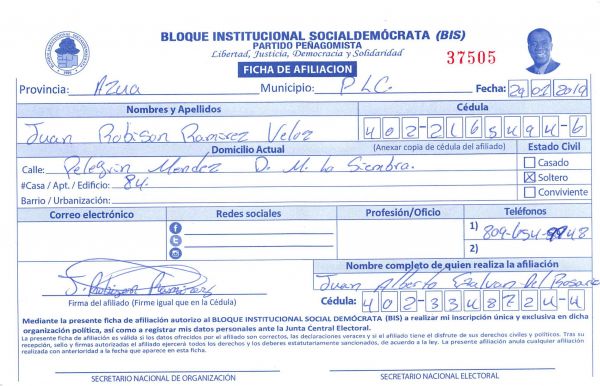 BLOQUE INSTITUCIONAL SOCIALDEMÓCRATA (BIS)
PARTIDO PEÑAGOMISTA
Libertad, Justicia, Democracia y Solidaridad
37505
FICHA DE AFILIACION
Provincia: Azua Municipio: P.L.C. Fecha: 29 01 2019
Nombres y Apellidos Cédula
Juan Robison Ramirez Veloz 402-2165494-6
Domicilio Actual (Anexar copia de cédula del afiliado) Estado Civil
Calle: Pelegrin Mendez D. M. La Siembra. Casado
#Casa / Apt. / Edificio: 84. X Soltero
Barrio / Urbanización: Conviviente
Correo electrónico Redes sociales Profesión/Oficio Teléfonos
1) 809-654-9948
2)
Nombre completo de quien realiza la afiliación
J. Robison Ramirez Juan Alberto Del Rosario
Firma del afiliado (Firme igual que en la Cédula) Cédula: 402-3348724-4
Mediante la presente ficha de afiliación autorizo al BLOQUE INSTITUCIONAL SOCIAL DEMÓCRATA (BIS) a realizar mi inscripción única y exclusiva en dicha
organización política, así como a registrar mis datos personales ante la Junta Central Electoral.
La presente ficha de afiliación es válida si los datos ofrecidos por el afiliado son correctos, las declaraciones veraces y si el afiliado tiene el disfrute de sus derechos civiles y políticos. Tras su
recepción, sello y firmas autorizadas el afiliado ejercerá todos los derechos y los deberes estatutariamente sancionados, de acuerdo a la ley. La presente afiliación anula cualquier afiliación
realizada con anterioridad a la fecha que aparece en esta ficha.
SECRETARIO NACIONAL DE ORGANIZACIÓN SECRETARIO NACIONAL ELECTORAL